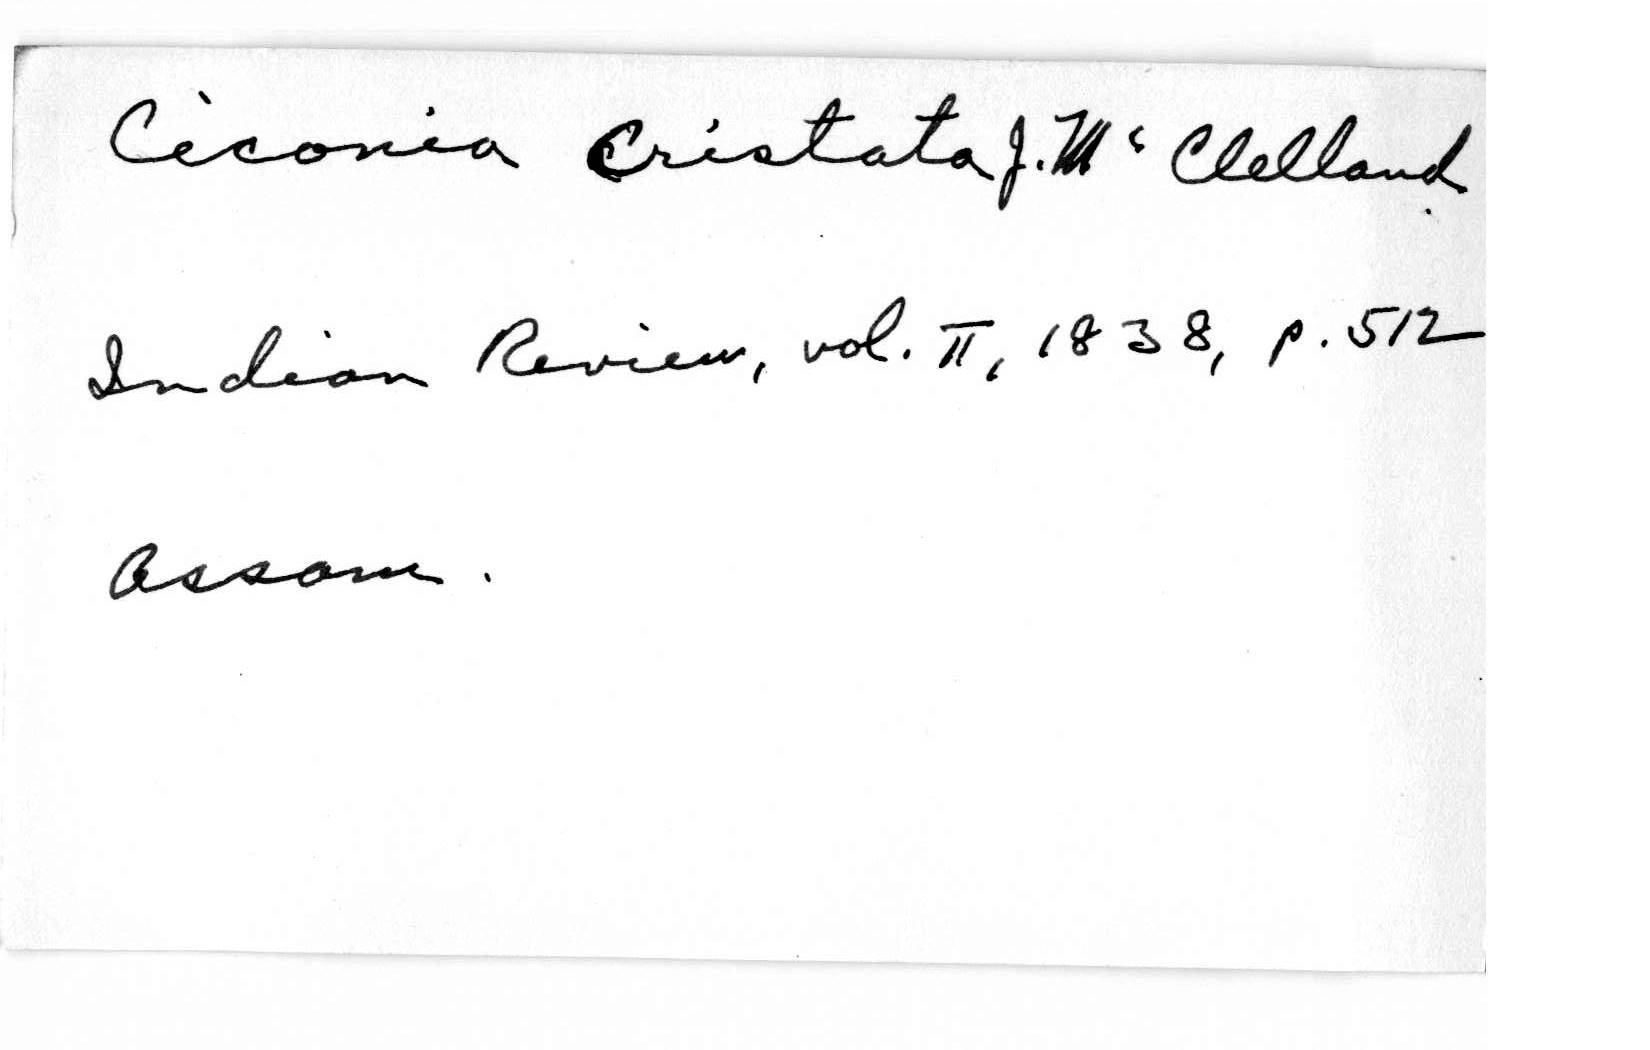 Ciconia cristata J. Mc Clelland.
Indian Review, vol. II, 1838, p. 512
Assam.